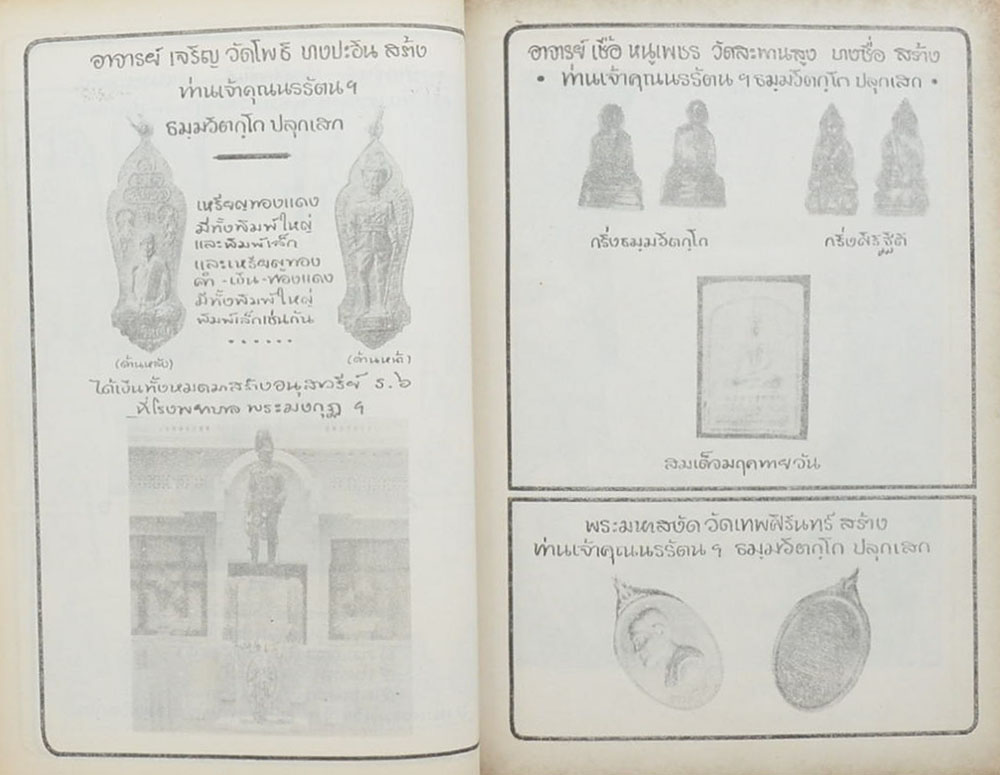 อาจารย์ เจริญ วัดโพธิ์ บางปะอิน สร้าง
ท่านเจ้าคุณนรรัตน ฯ
ธมฺมวิตกฺโก ปลุกเสก
เหรียญทองแดง
มีทั้งพิมพ์ใหญ่
และพิมพ์เล็ก
และเหรียญทอง
คำ - เงิน - ทองแดง
มีทั้งพิมพ์ใหญ่
พิมพ์เล็กเช่นกัน
(ด้านหลัง)
(ด้านหน้า)
ได้เงินทั้งหมดมาสร้างอนุสาวรีย์ ร.๖
ที่โรงพยาบาล พระมงกุฎ ฯ
อาจารย์ เชื้อ หนูเพชร วัดสะพานสูง บางซื่อ สร้าง
• ท่านเจ้าคุณนรรัตน ฯ ธมฺมวิตกฺโก ปลุกเสก •
กริ่งธมฺมวิตกฺโก
กริ่ง
สมเด็จมฤคทายวัน
พระมหาสงัด วัดเทพศิรินทร์ สร้าง
ท่านเจ้าคุณนรรัตน ฯ ธมฺมวิตกฺโก ปลุกเสก